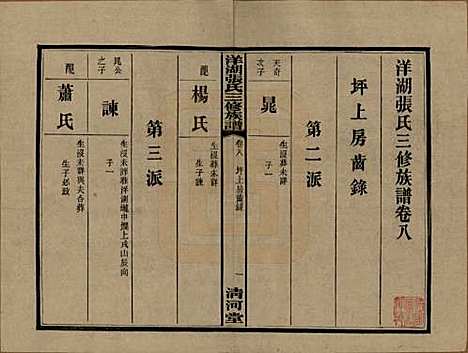 洋湖張氏三修族譜卷八
坪上房齒錄
第二派
天奇
次子
晁
生沒葬未詳
子一
洋湖張氏三修族譜
卷八
坪上房齒錄
一
清河堂
配
楊氏
生沒葬未詳
生子諫
第三派
晁公
之子
諫
生沒未詳葬洋湖壠中
上戌山辰向
子一
配
蕭氏
生沒未詳與夫合葬
生子